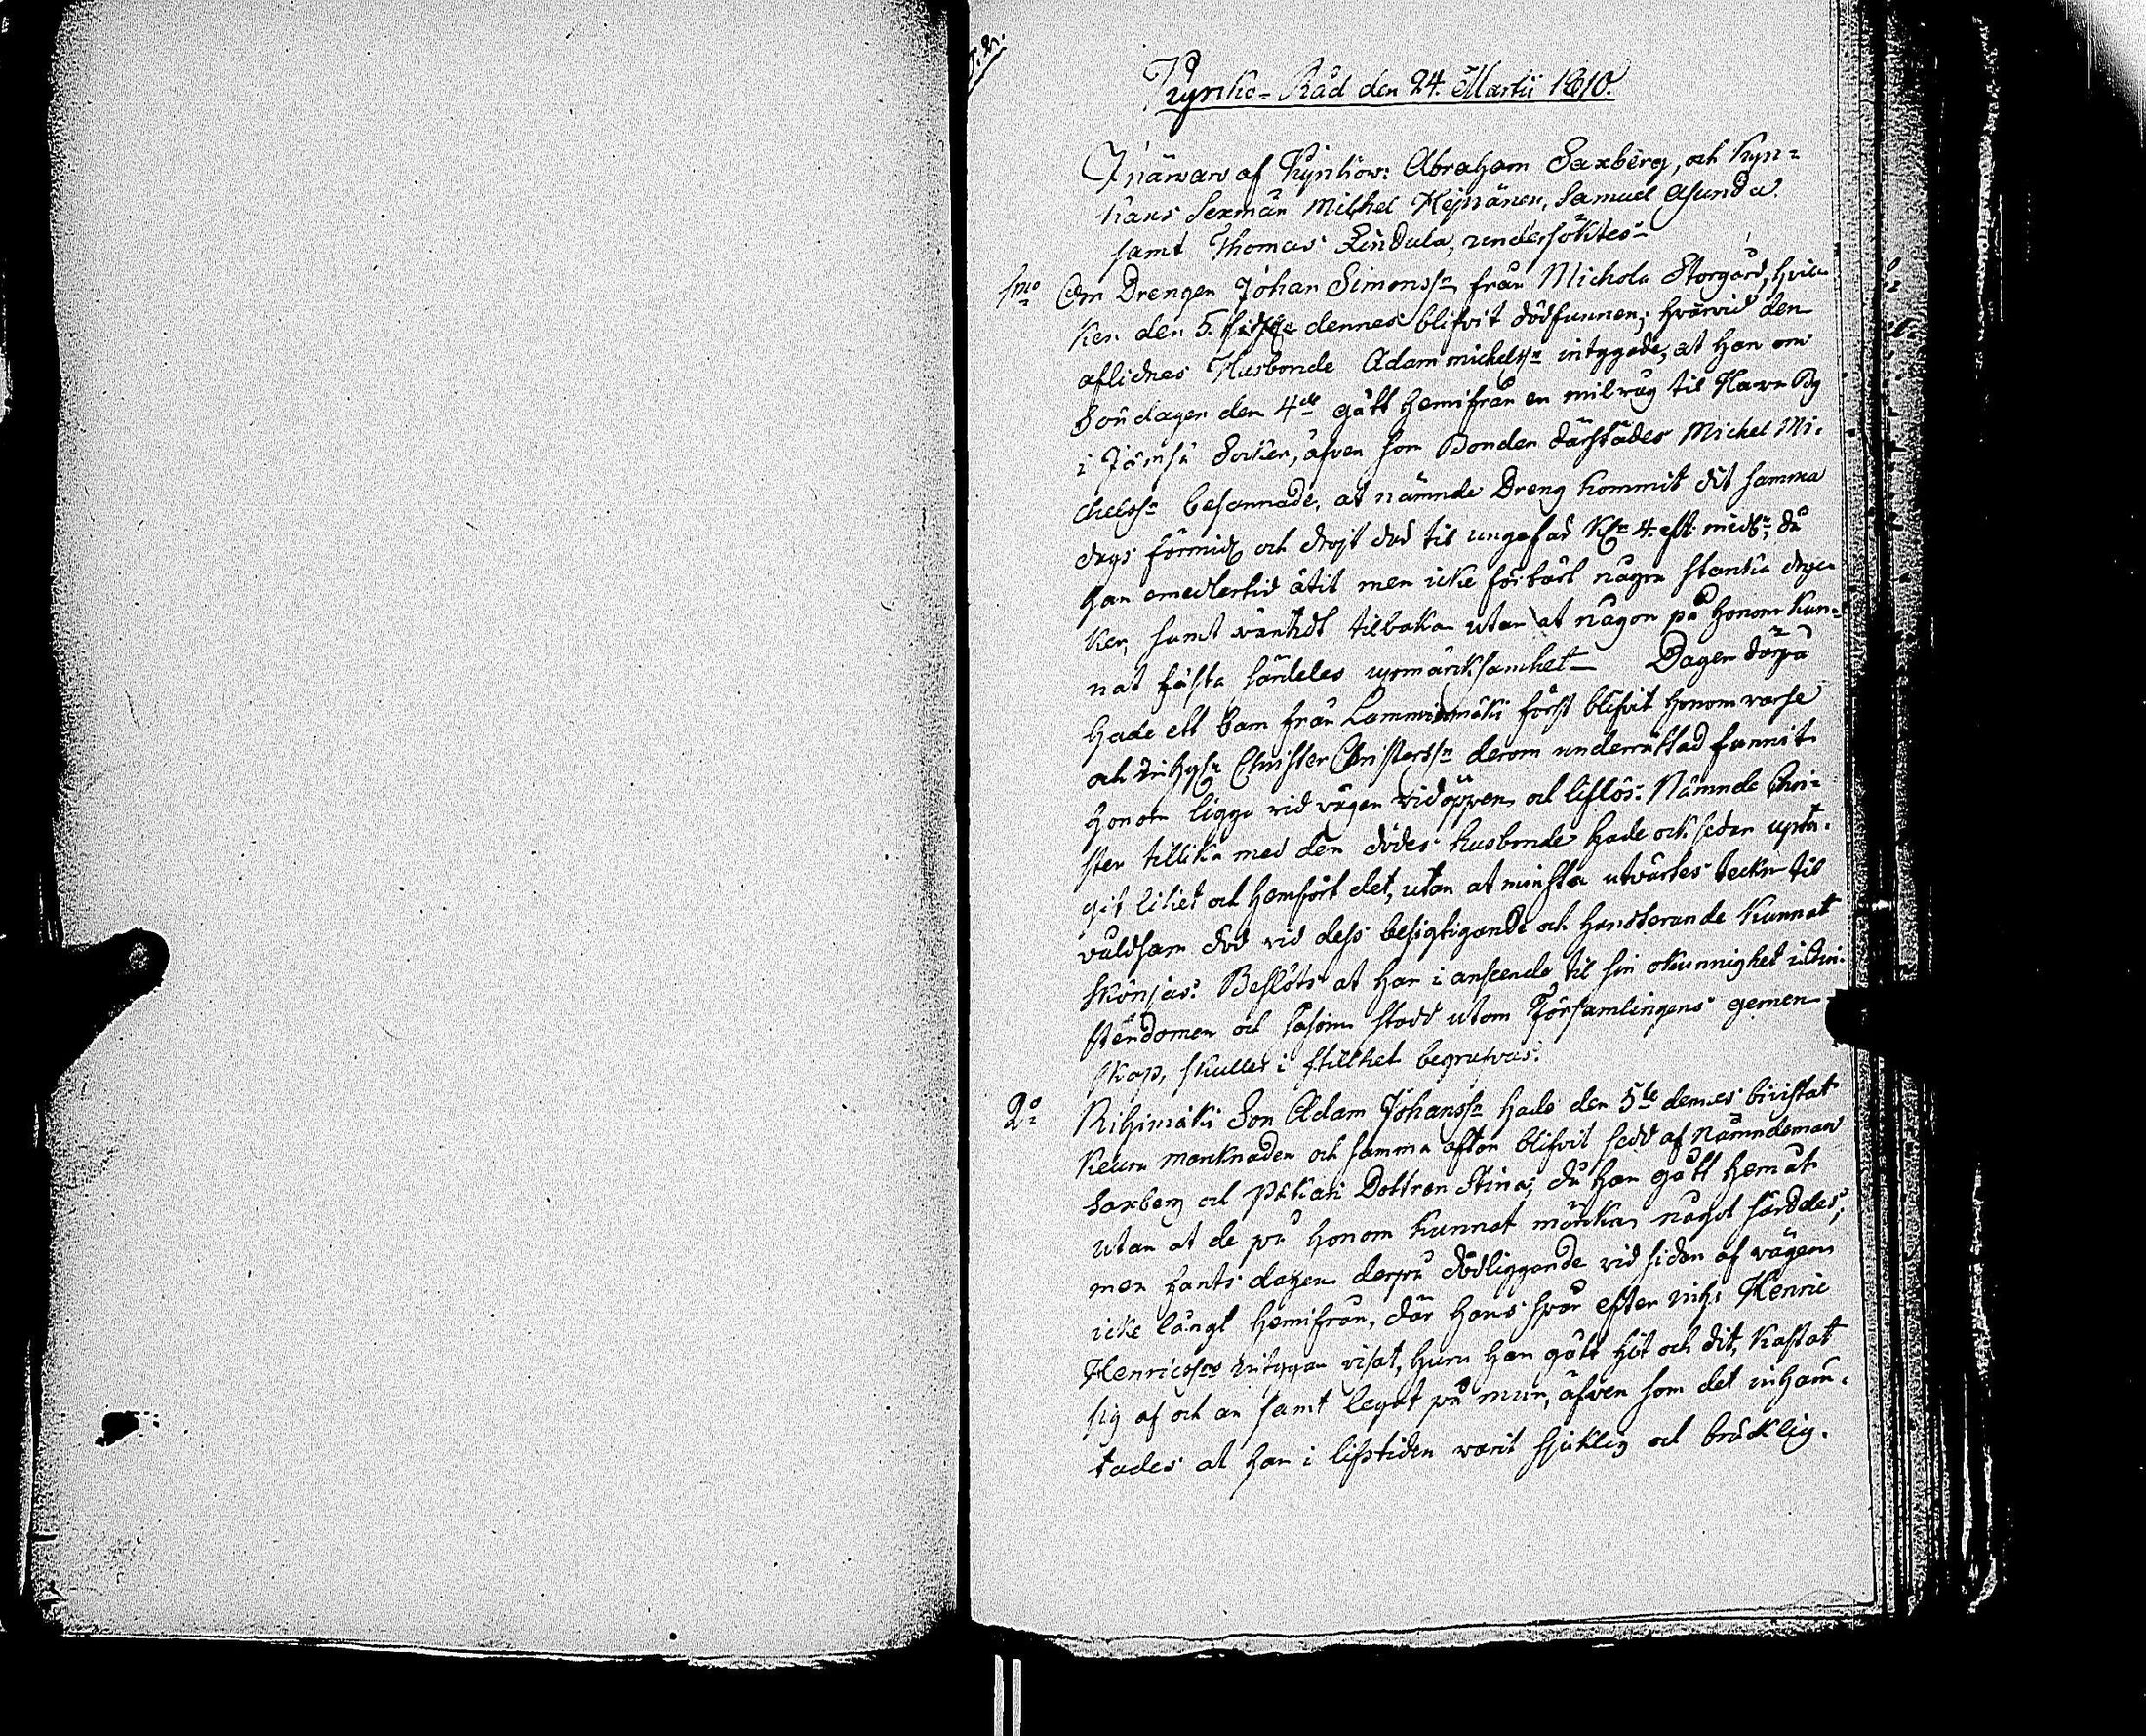 Kyrko-Råd den 24. Martii 1810.
I närvaro af Kyrkov: Abraham Saxberg, och Kyr-
kans Sexmän Michel Heinänen, Samuel Asunda
samt Thomas Lindula, undersöktes
1mo Om Drengen Johan Simonss: från Michola Storgård, hvil-
ken den 5. dennes blifvit dödfunnen; hvarvid den
aflidnes Husbonde Adam Michelss: intygade, at han om
Söndagen den 4de gått hemifrån en milväg til By
i Jämsä Socken, äfven som Bonden därstädes Michel Mi-
chelss: besannade, at nämnde Dreng kommit dit samma
dags förmid och drojt der til ungefär Kl: 4. eft: midd:, då
han emedlertid ätit men icke förtärt några starka dryc-
ker, samt vändt tilbaka utan at någon på honom kun-
nat fästa särdeles upmärksamhet – Dagen därpå
hade ett barn från Lamminmäki först blifvit honom varse
och Inhys: Christer Christerss: derom underrättad funnit
honom ligga vid vägen vidöppen och liflös: Nämnde Chri-
ster tillika med den dödes husbonde hade ock sedan upta-
git liket och hemfört det, utan at minsta utvärtes teckn til
våldsam död vid dess besigtigande och handterande kunnat
skönjas: Beslöts at han i anseende til sin okunnighet i Chri-
stendomen och såsom stadd utom Församlingens gemen-
skap, skulle i stillhet begrafvas:
2o Rihimäki Son Adam Johanss: hade den 5te dennes bivistat
Keuru marknaden och samma afton blifvit sedd af Nämndeman
Saxberg och Pihkari Dottren Stina, då han gått hemåt
utan at de på honom kunnat märka något särdeles;
men fants dagen derpå dödliggande vid sidan af vägen
icke långt hemifrån, där hans spår efter inh: Henric
Henricssons intygan visat, huru han gått hit och dit, kastat
sig af och an samt legat på mun, äfven som det inhäm-
tades at han i lifstiden varit sjuklig och bräcklig.